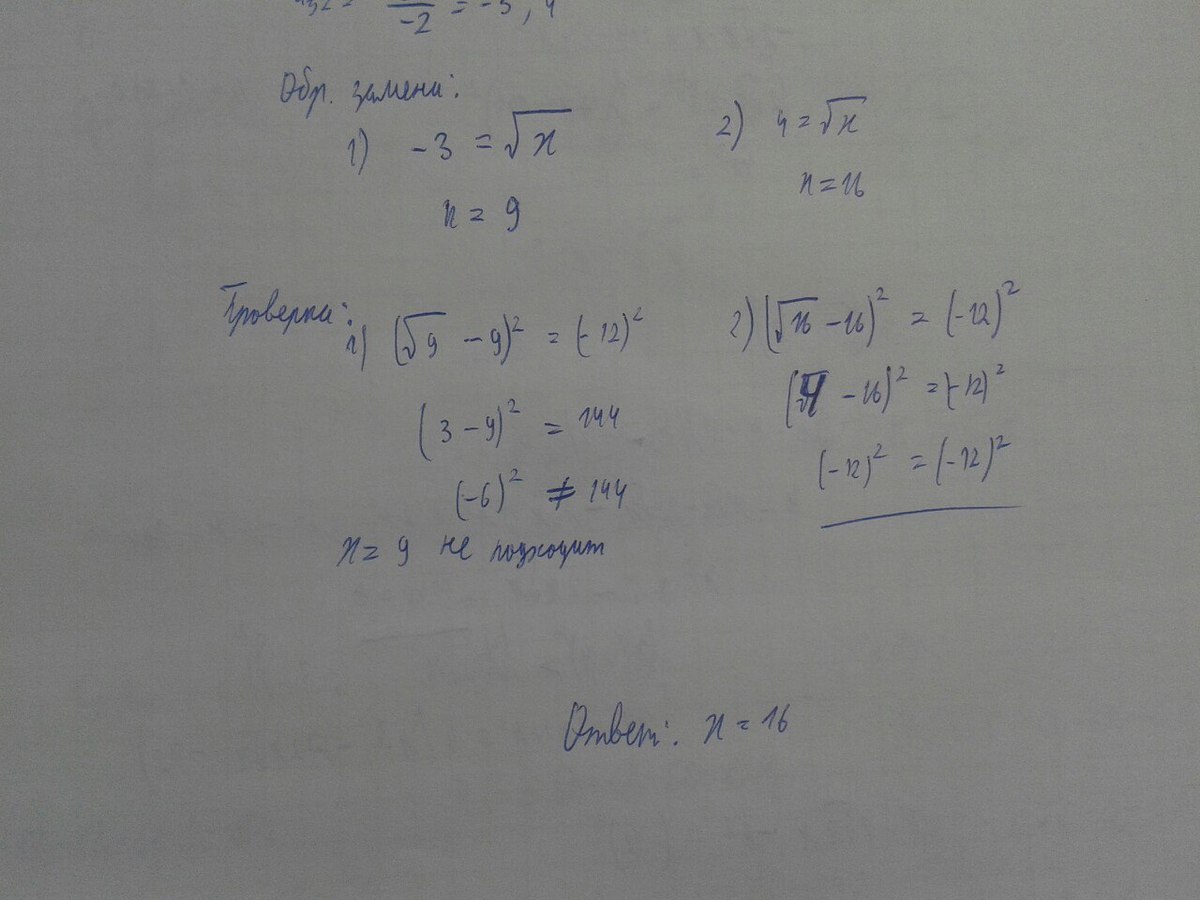 -2 = -3, 4
Обр. замена:
1) -3 = √x
x = 9
2) 4 = √x
x = 16
Проверка:
1) (√9 - 9)² = (-12)²
(3 - 9)² = 144
(-6)² ≠ 144
x = 9 не подходит
2) (√16 - 16)² = (-12)²
(4 - 16)² = (-12)²
(-12)² = (-12)²
Ответ: x = 16